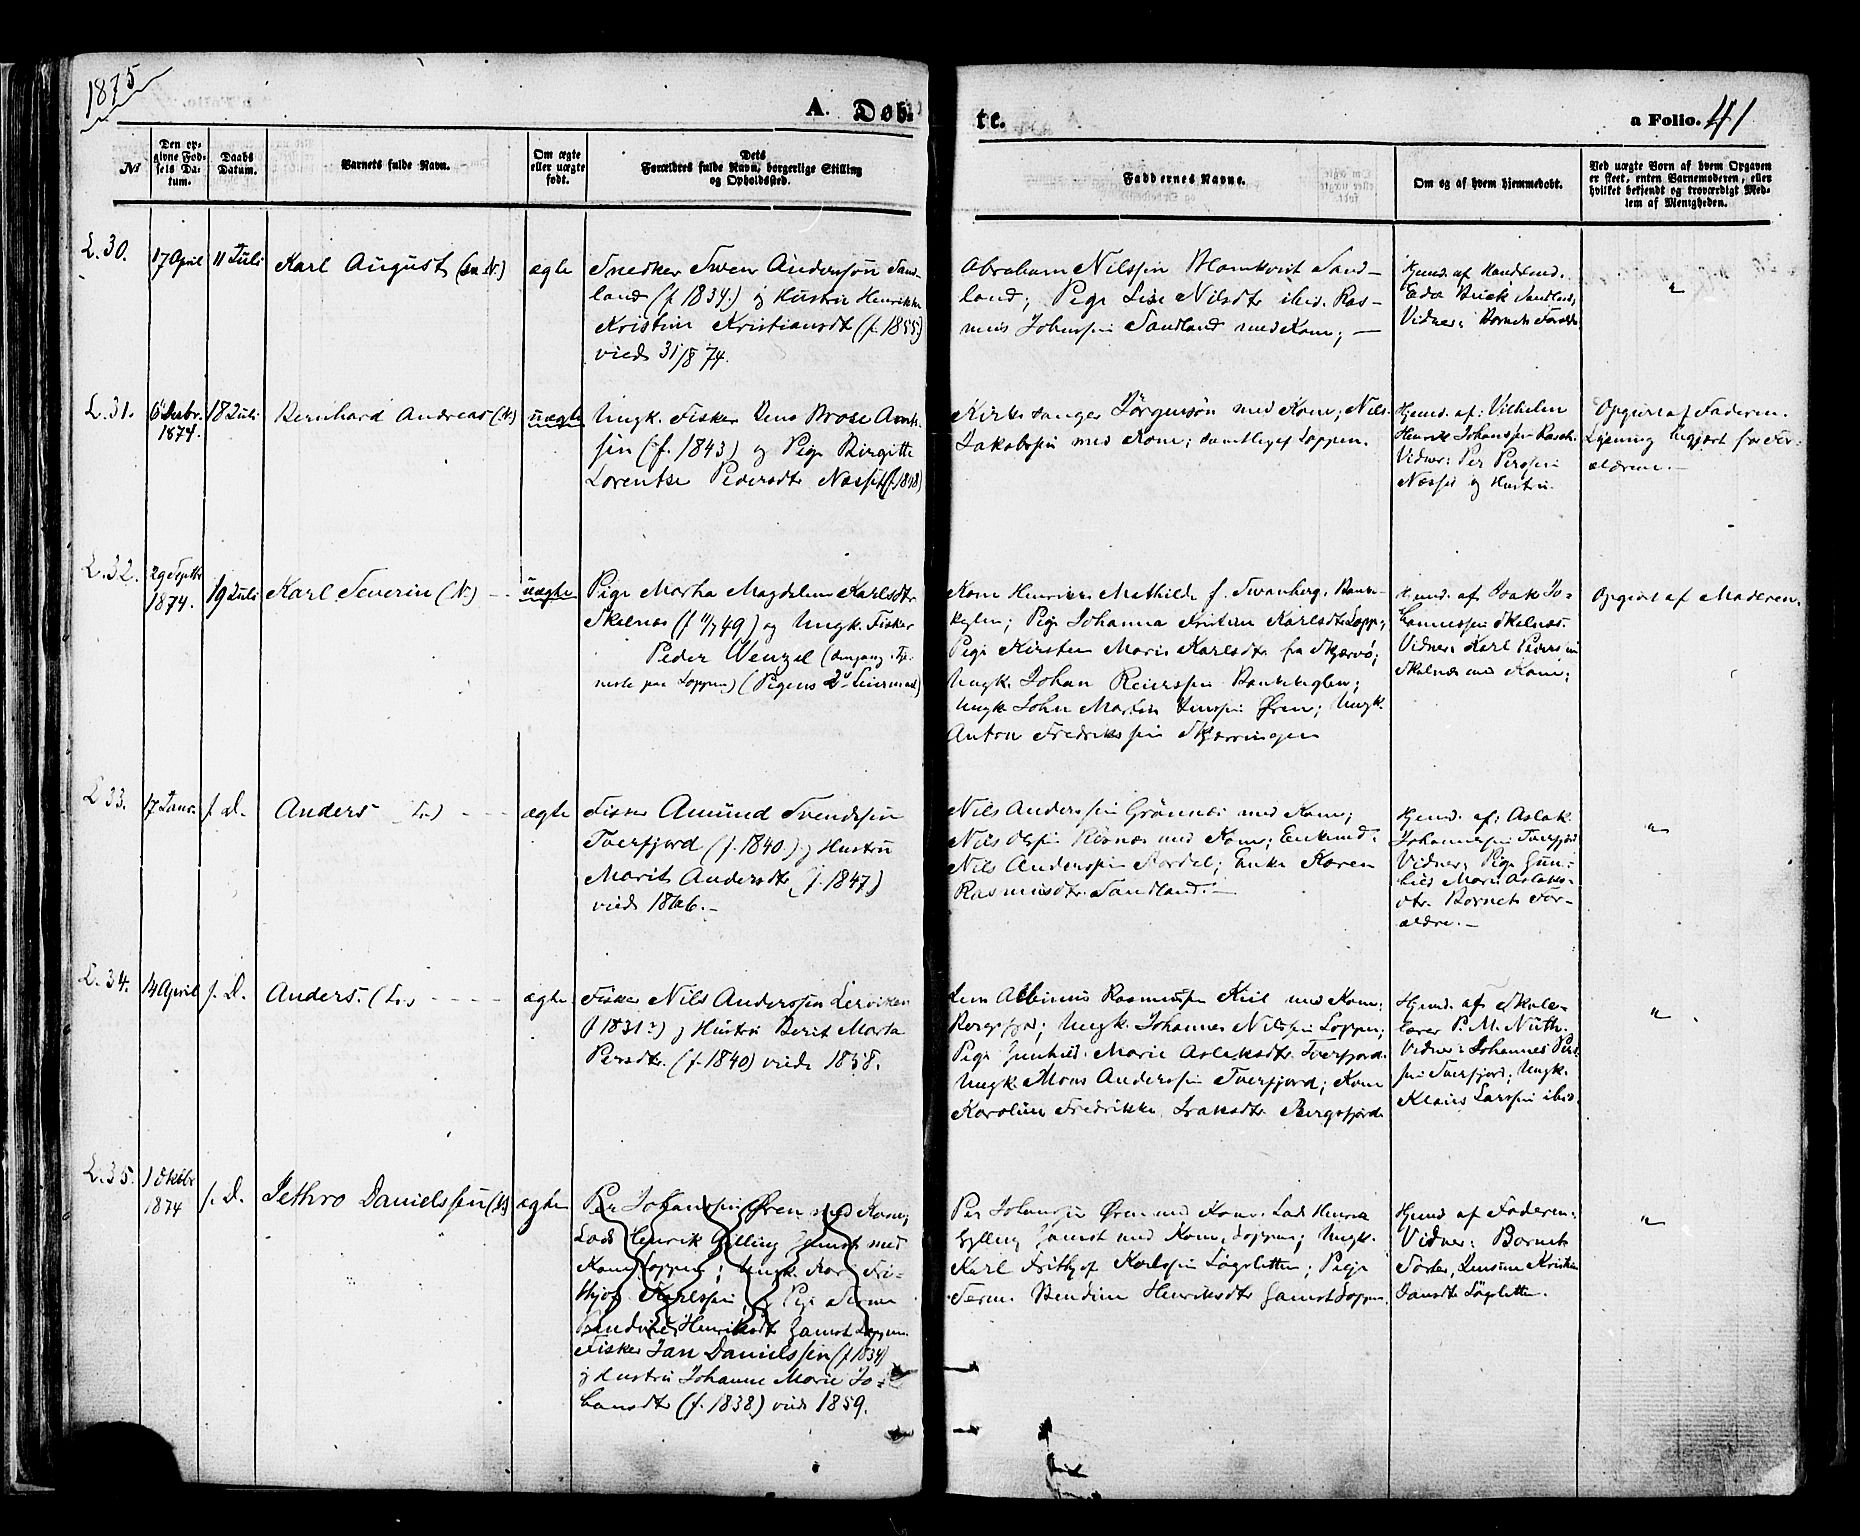 1875
A. Døb-
te.
a Folio. 41
№
Den op-
givne Fød-
sels Da-
tum.
Daabs
Datum.
Barnets fulde Navn.
Om ægte
eller uægte
født.
Dets
Forældres fulde Navn, borgerlige Stilling
og Opholdssted.
Faddernes Navne.
Om og af hvem hjemmedøbt.
Ved uægte Børn af hvem Opgaven
er skeet, enten Barnemoderen, eller
hvilket bekjendt og troværdigt Med-
lem af Menigheden.
L.30.
17 April
11 Juli
Karl August
ægte
Snedker Sven Anderssøn Sand-
land (f. 1834.) og Hustru Henrikke
Kristine Kristiansdtr (f. 1855)
viede 31/8 74.
Abraham Nilssen Blomkvist Sand-
land; Pige Lise Nilsdtr ibid. Ras-
mus Johnssen Sandland med Kone; —
Hjmd. af Handelsmd.
Buck Sandland,
Vidner: Barnets Foræld.
"
L.31.
6 Decbr.
1874.
18 Juli
Bernhard Andreas (N.)
uægte
Ungk. Fisker Jens Brose Arnt-
sen (f. 1843) og Pige Birgitte
Lorentse Pedersdtr (f. 1848)
Kirkesanger Jørgensøn med Kone; Nils
Jakobssen med Kone; samtlige af Loppen.
Hjmd. af: Vilhelm
Henrik Johanssen
Vidner: Per Perssen
og Hustru.
Opgivet af Faderen.
for For-
ældrene. —
L.32.
29 Septbr
1874.
19 Juli
Karl Severin (N.)
uægte
Pige Martha Magdalena Karlsdtr
Skalnæs (f 49) og Ungk. Fisker
Peder Wenzel (dengang Tje-
neste paa Loppen) (Pigens 2d Leiermaal)
Kone Henrikke Mathilde f. Svanberg,
Pige Johanna Kristine Karlsdtr Loppe;
Pige Kirsten Marie Karlsdtr fra Skjærvø;
Ungk. Johan Reierssen
Ungk John Martin Jenssen Øren; Ungk.
Anton Fredrikssen
Hjmd. af Isak Jo-
hannessen Skalnæs.
Vidner: Karl Pederssen
Skalnæs med Kone;
Opgivet af Moderen.
L 33.
17 Janr.
s. D.
Anders
ægte
Fisker Amund Svendssen
Tverfjord (f. 1840.) og Hustru
Marit Andersdtr (f. 1847.)
viede 1866. —
Nils Anderssen med Kone;
Nils Olssen med Kone; Enkemd.
Nils Anderssen; Enke Karen
Rasmusdtr Sandland. —
Hjmd. af: Aslak
Johannessen Tverfjord
Vidner: Pige Gun-
hild Marie Aslaks-
dtr. Barnets For-
ældre. —
"
L.34.
14 April
s. D.
Anders.
ægte
Fisker Nils Anderssen Lerviken
(f 1831?) og Hustru Berit Marta
Persdtr. (f. 1840) viede 1858.
Rasmussen Kiil med Kone
Bergsfjord; Ungk. Johannes Nilssen Loppen;
Pige Gunhild Marie Aslaksdtr Tverfjord.
Ungk. Mons Anderssen Tverfjord; Kone
Karoline Fredrikke Isaksdtr Bergsfjord
Hjmd. af Skole-
lærer P. M. Nuth.
Vidner: Johannes Pers-
sen Tverfjord; Ungk.
Klaus Larssen ibid.
"
L.35.
1 Oktbr
1874
s. D.
Jethro Danielssen
ægte
Per Johanssen Øren med Kone;
Lods Henrik Gylling Gamst med
Kone Loppen; Ungk. Karl Fri-
thjof Karlssen, og Pige
Henriksdtr Gamst Loppen.
Fisker Jan Danielssen (f 1834)
og Hustru Johanne Marie Jo-
hansdtr (f. 1838) viede 1859.
Per Johanssen Øren med Kone. Lods Henrik
Gylling Gamst med Kone, Loppen; Ungk.
Karl Frithjof Karlssen Løgsletten; Pige
Henriksdtr Gamst Loppen.
Hjmd af Faderen.
Vidner: Barnets
Moder, Kristian-
sdtr Løgsletten.
"